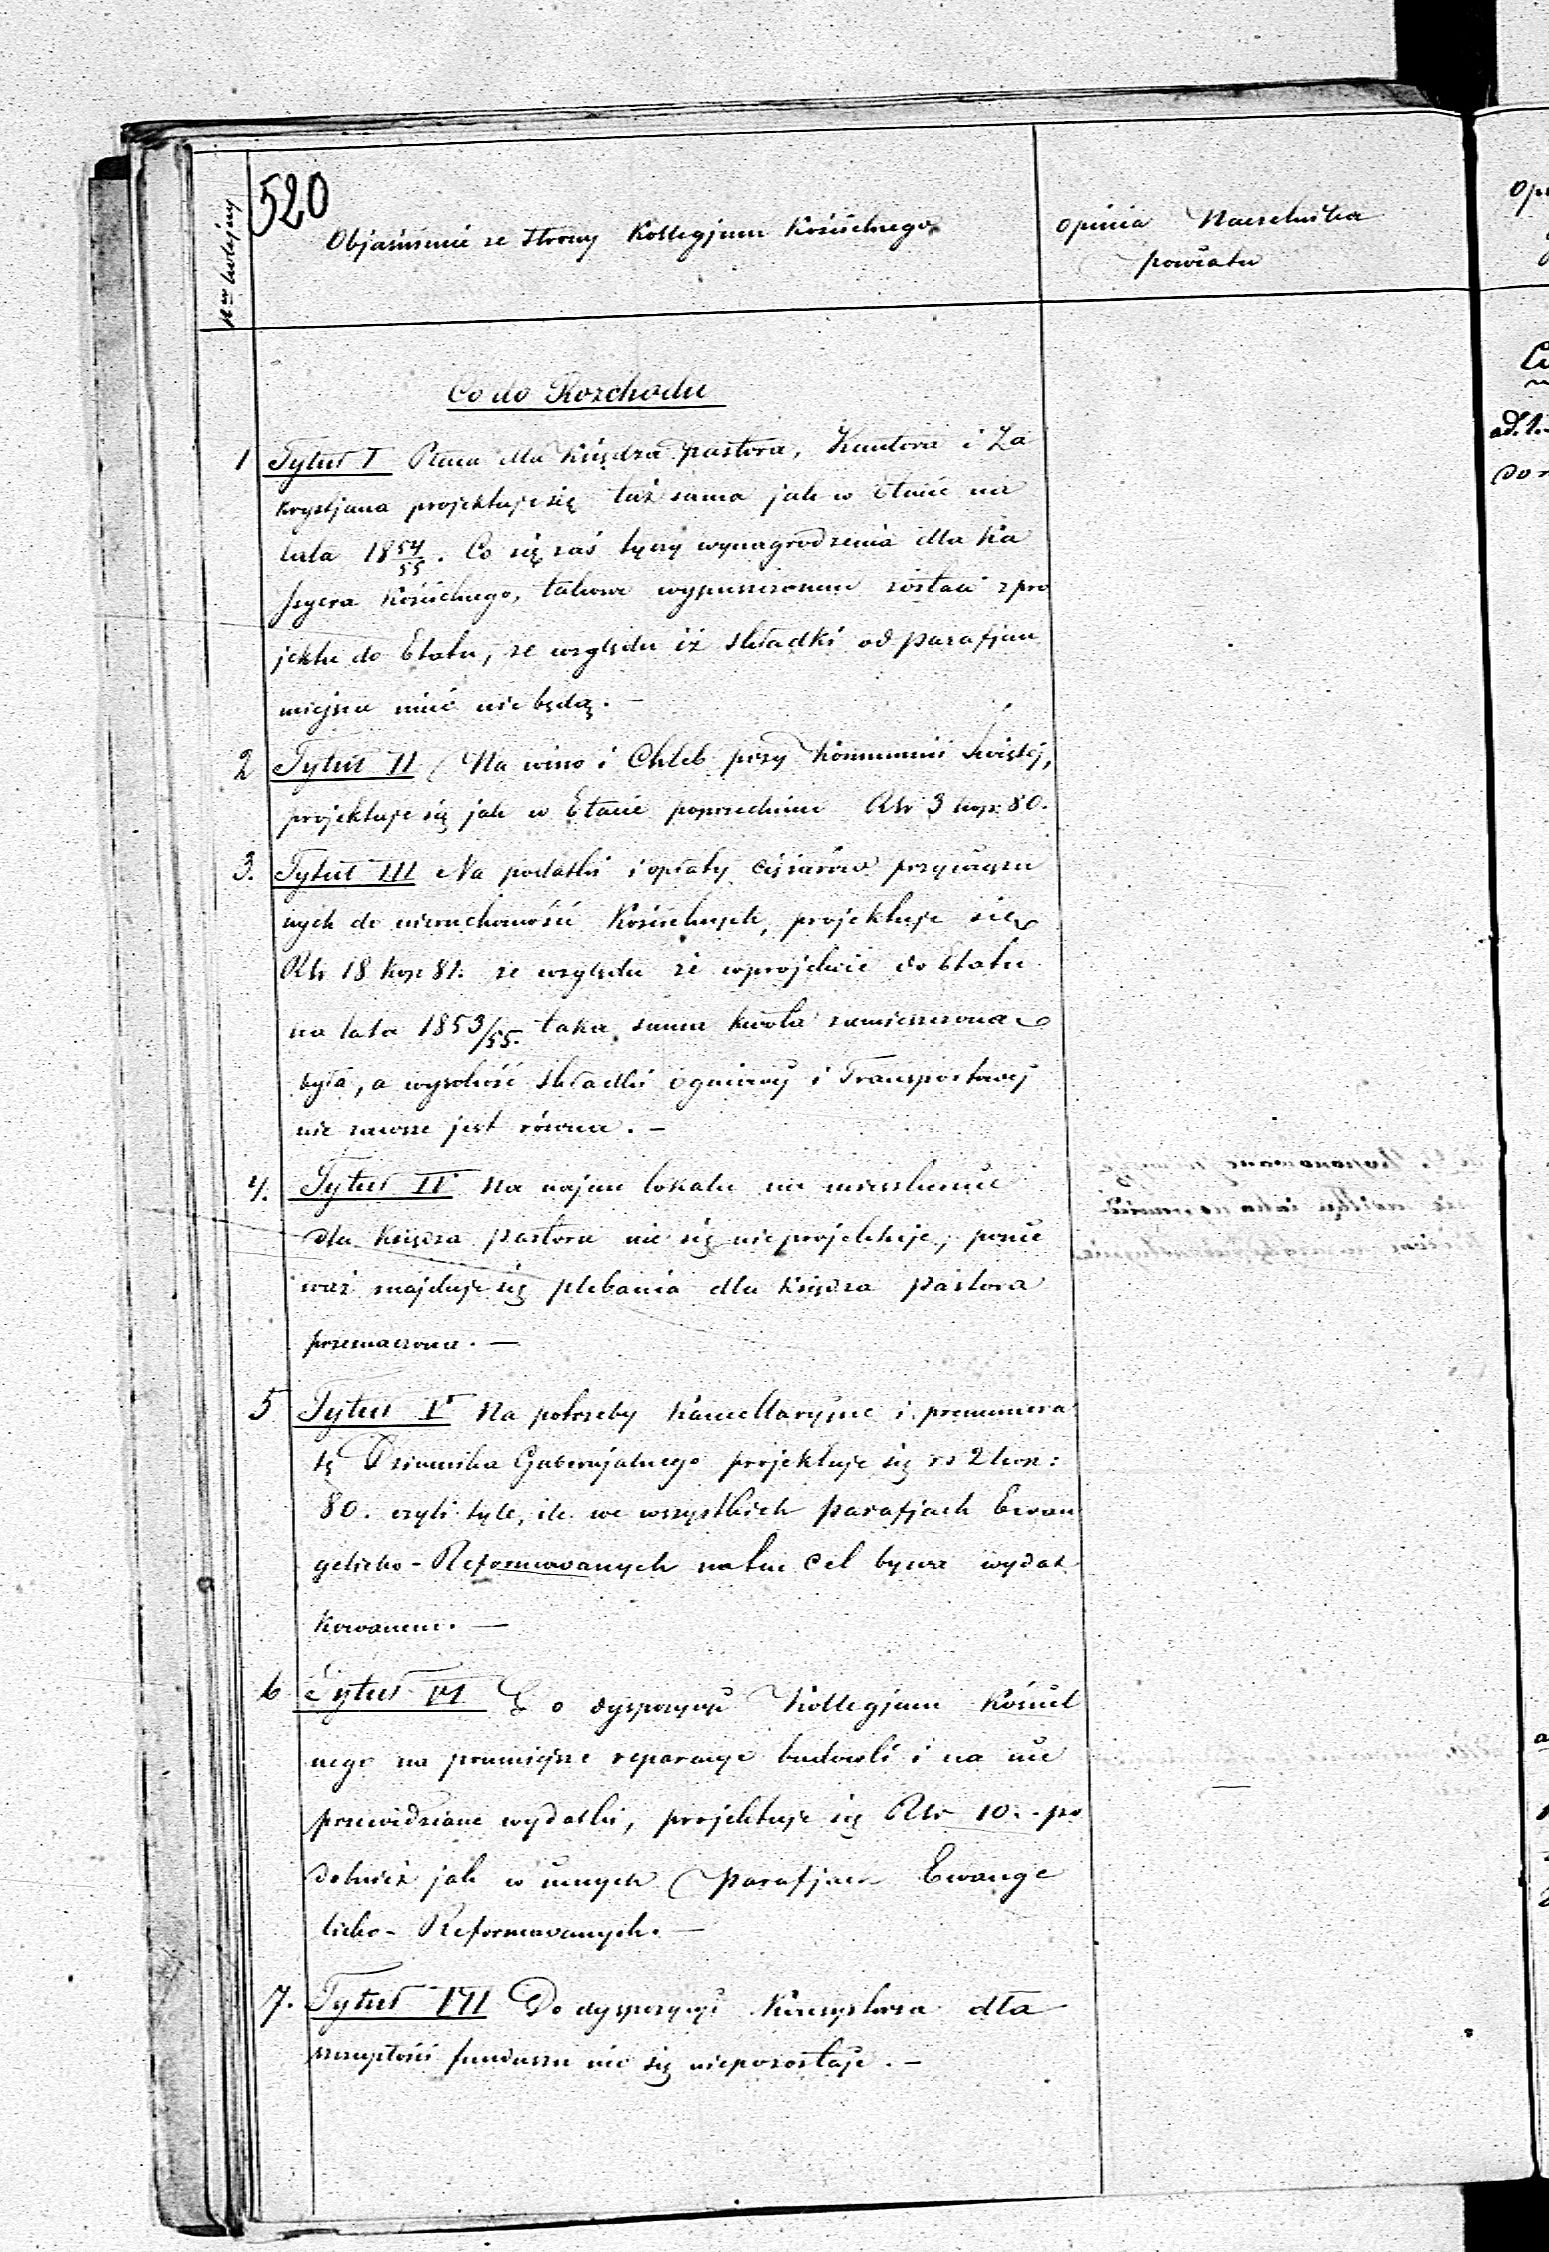 520
Nr kolejny
Objaśnienie ze strony Kollegjum Kościelnego
Opinia Naczelnika
powiatu
Co do Rozchodu
1 Tytuł I Płaca dla Księdza pastora, Kantora i Za
krystjana projektuje się taż sama jak w Etacie na
lata 1854/55. Co się zaś tyczy wynagrodzenia dla Ka
ssyera Kościelnego, takowe wypuszczonem zostało z pro
jektu do Etatu, ze względu iż składki od parafjan
miejsca mieć nie będą. —
2 Tytuł II Na wino i Chleb przy Kommunii Świętej,
projektuje się jak w Etacie poprzednim RSr 3 kop: 80.
3. Tytuł III Na podatki i opłaty ciężarów przywiąza
nych do nieruchomości Kościelnych, projektuje się
RSr 18 kop 81. ze względu że w projekcie do Etatu
na lata 1853/55. taka summa zamieszczona
była, a wysokość składki ogniowej i Transportowej
nie zawsze jest równa. —
4. Tytuł IV Na najem lokalu na mieszkanie
dla Księdza pastora nic się nie projektuje, ponie
waż znajduje się plebania dla Księdza pastora
przeznaczona. —
5 Tytuł V Na potrzeby Kancellaryjne i prenumera
tę Dziennika Gubernjalnego projektuje się rs 2 kop:
80. czyli tyle, ile we wszystkich parafjach Ewan
gelicko-Reformowanych na ten cel bywa wydat
kowanem. —
6 Tytuł VI Do dyspozycyi Kollegjum Kościel
nego na pomniejsze reparacye budowli i na nie
przewidziane wydatki, projektuje się RSr 10. - po
dobnież jak w innych parafjach Ewange
licko-Reformowanych. —
7. Tytuł VII Do dyspozycyi Konsystorza dla
szczupłości funduszu nic się niepozostaje. —